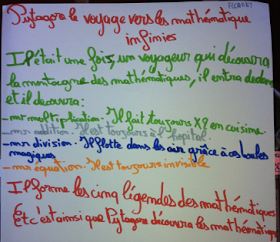 FLORENT
Pytagore le voyage vers les mathématique
infinies
Il était une fois, un voyageur qui découvra
la montagne des mathématiques, il entra dedan
et il decouvra :
- mr multiplication : Il fait toujours X9 en cuisine.
- mr addition : Il est toujours à l'hopital.
- mr division : Il flotte dans les air grâce à ces boules
magiques
- mr equation : Il est toujours invisible
Il forme les cinq légendes des mathématique
Et c'est ainsi que Pytagore découvra les mathématiq